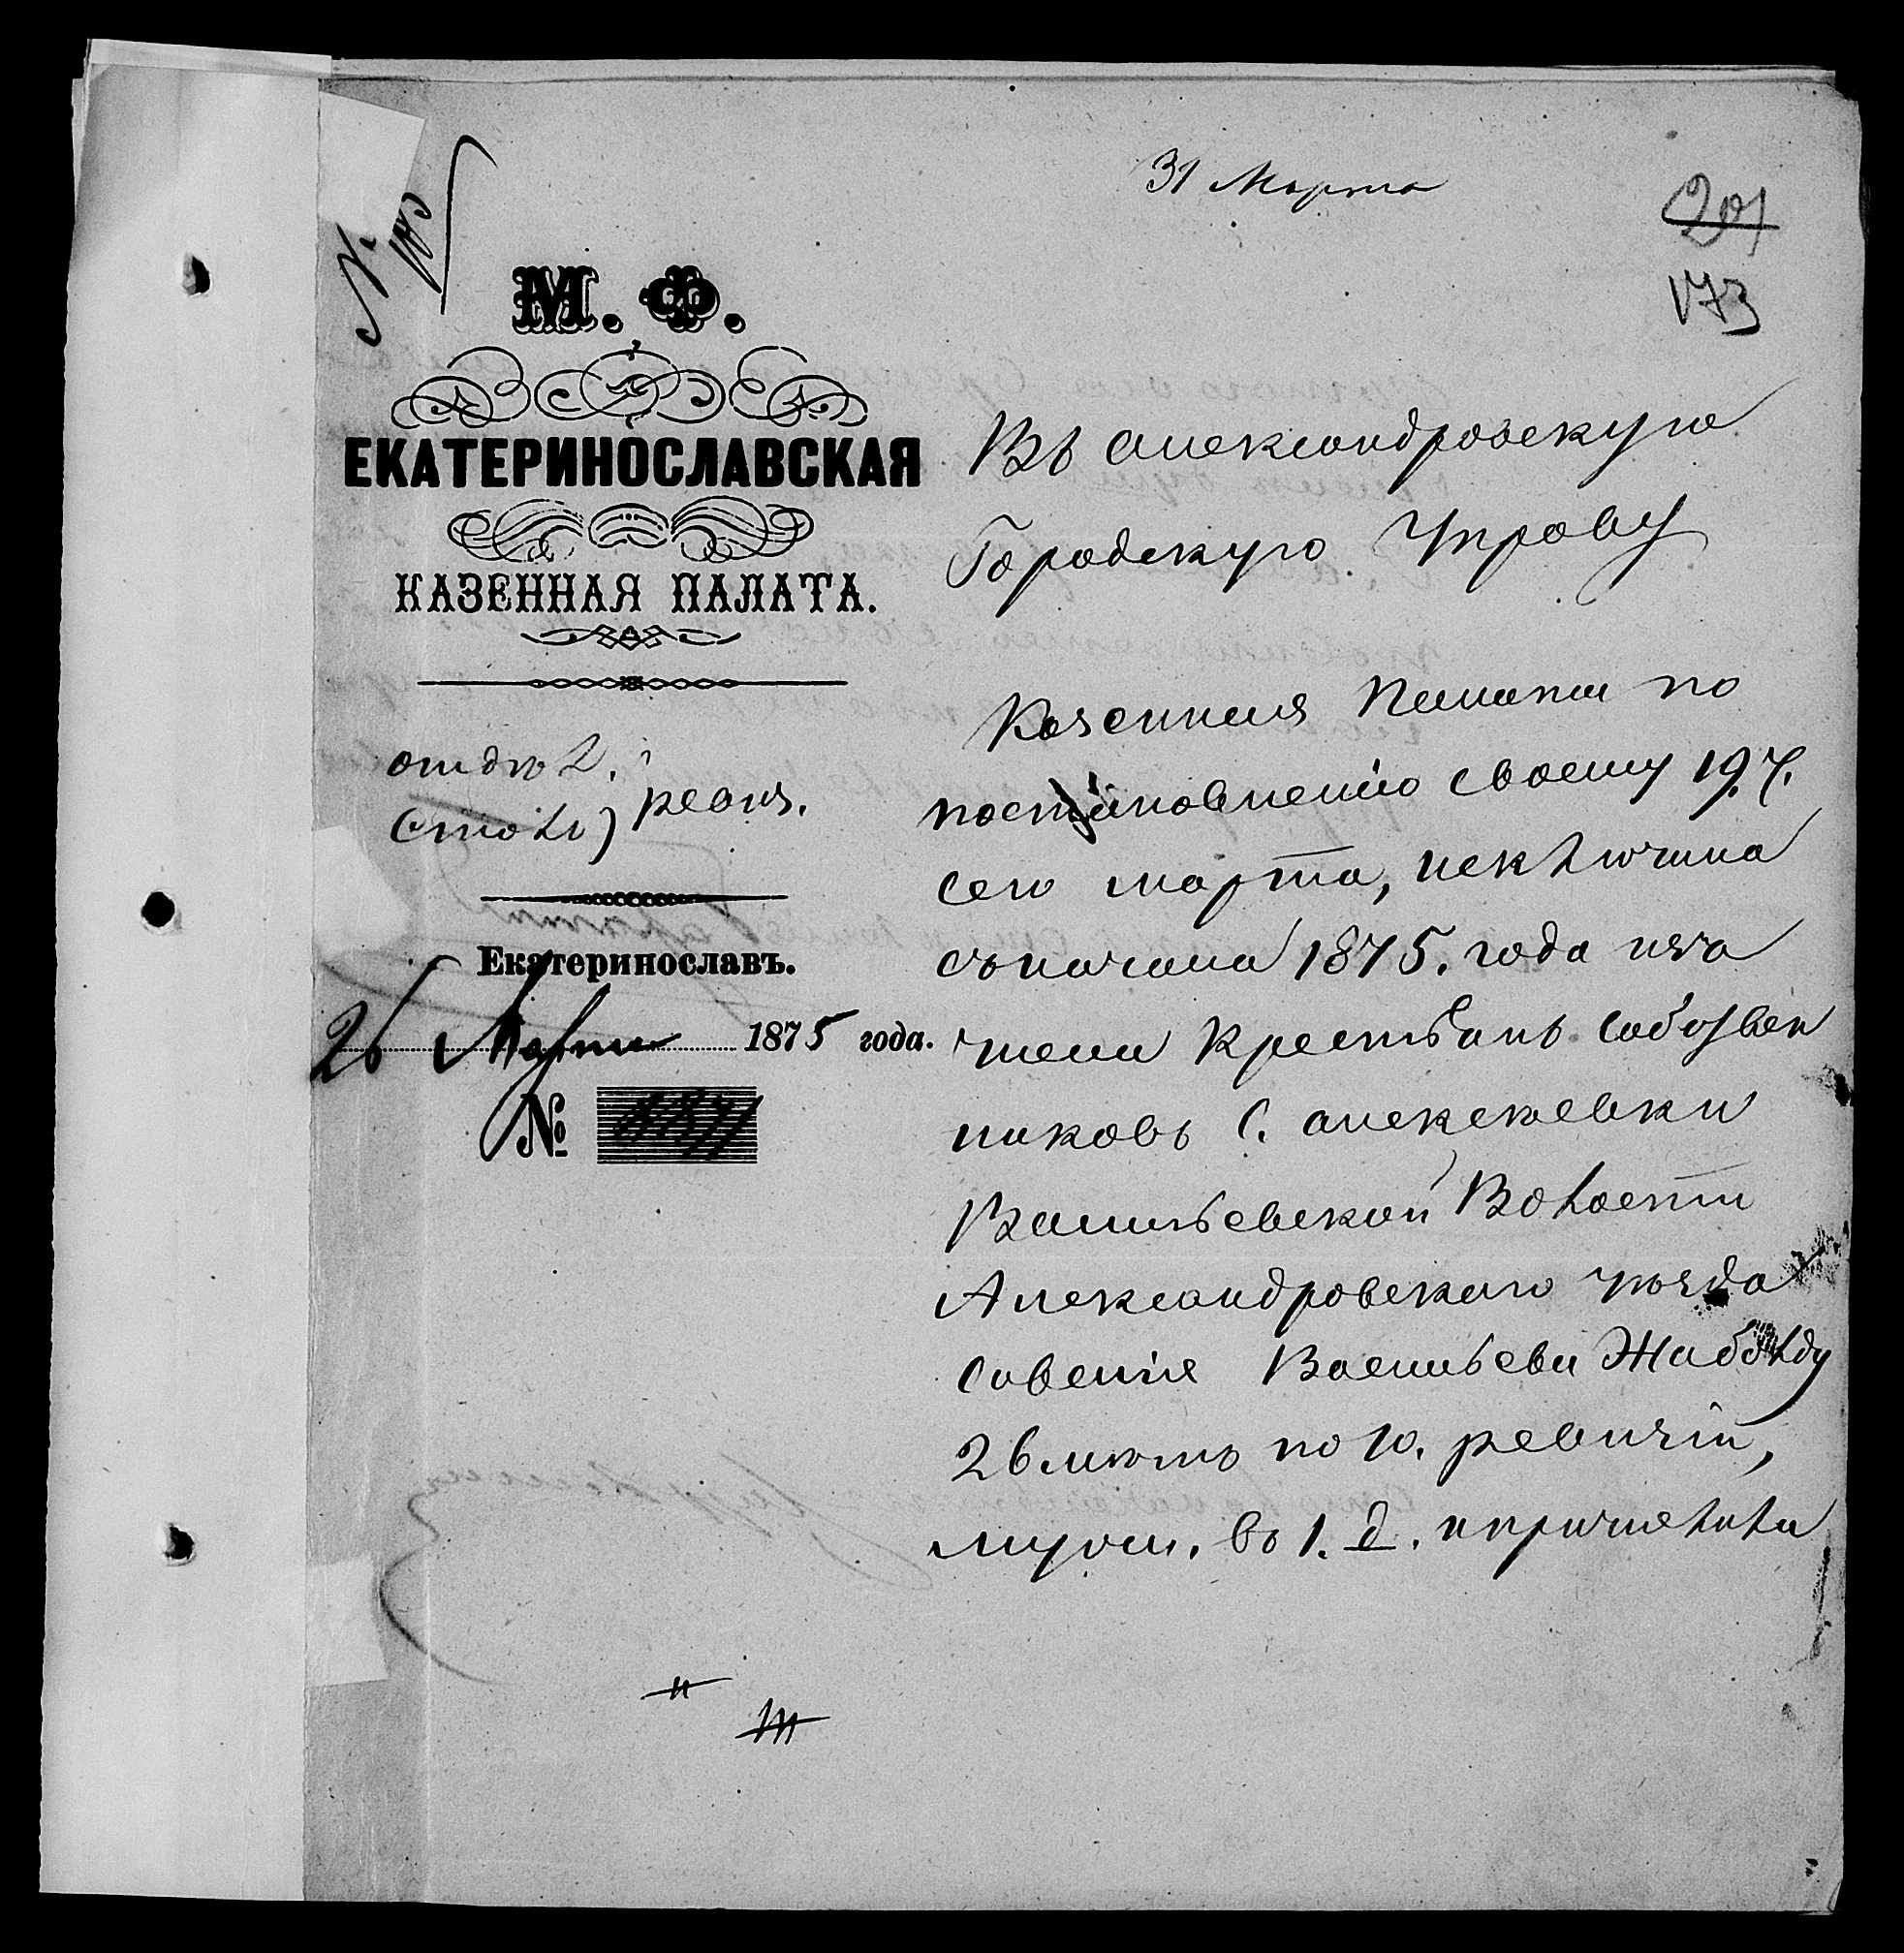 31 Марта
201
173
№ 185
М. Ф.
ЕКАТЕРИНОСЛАВСКАЯ
КАЗЕННАЯ ПАЛАТА.
Отдѣл.
Столъ) ревиз.
Екатеринославъ.
26 Марта 1875 года.
№
Въ Александровскую
Городскую Управу
Казенная Палата по
постановленію своему 19. ч.
сего марта, исключила
съ начала 1875. года изъ о
щены Крестьянъ собствен
никовъ С. Алексѣевки
Васильевской Волости
Александровскаго уѣзда
Савелія Васильева Жаб
26 лѣтъ по 10. ревизіи,
муж. въ 1. д. и причислила